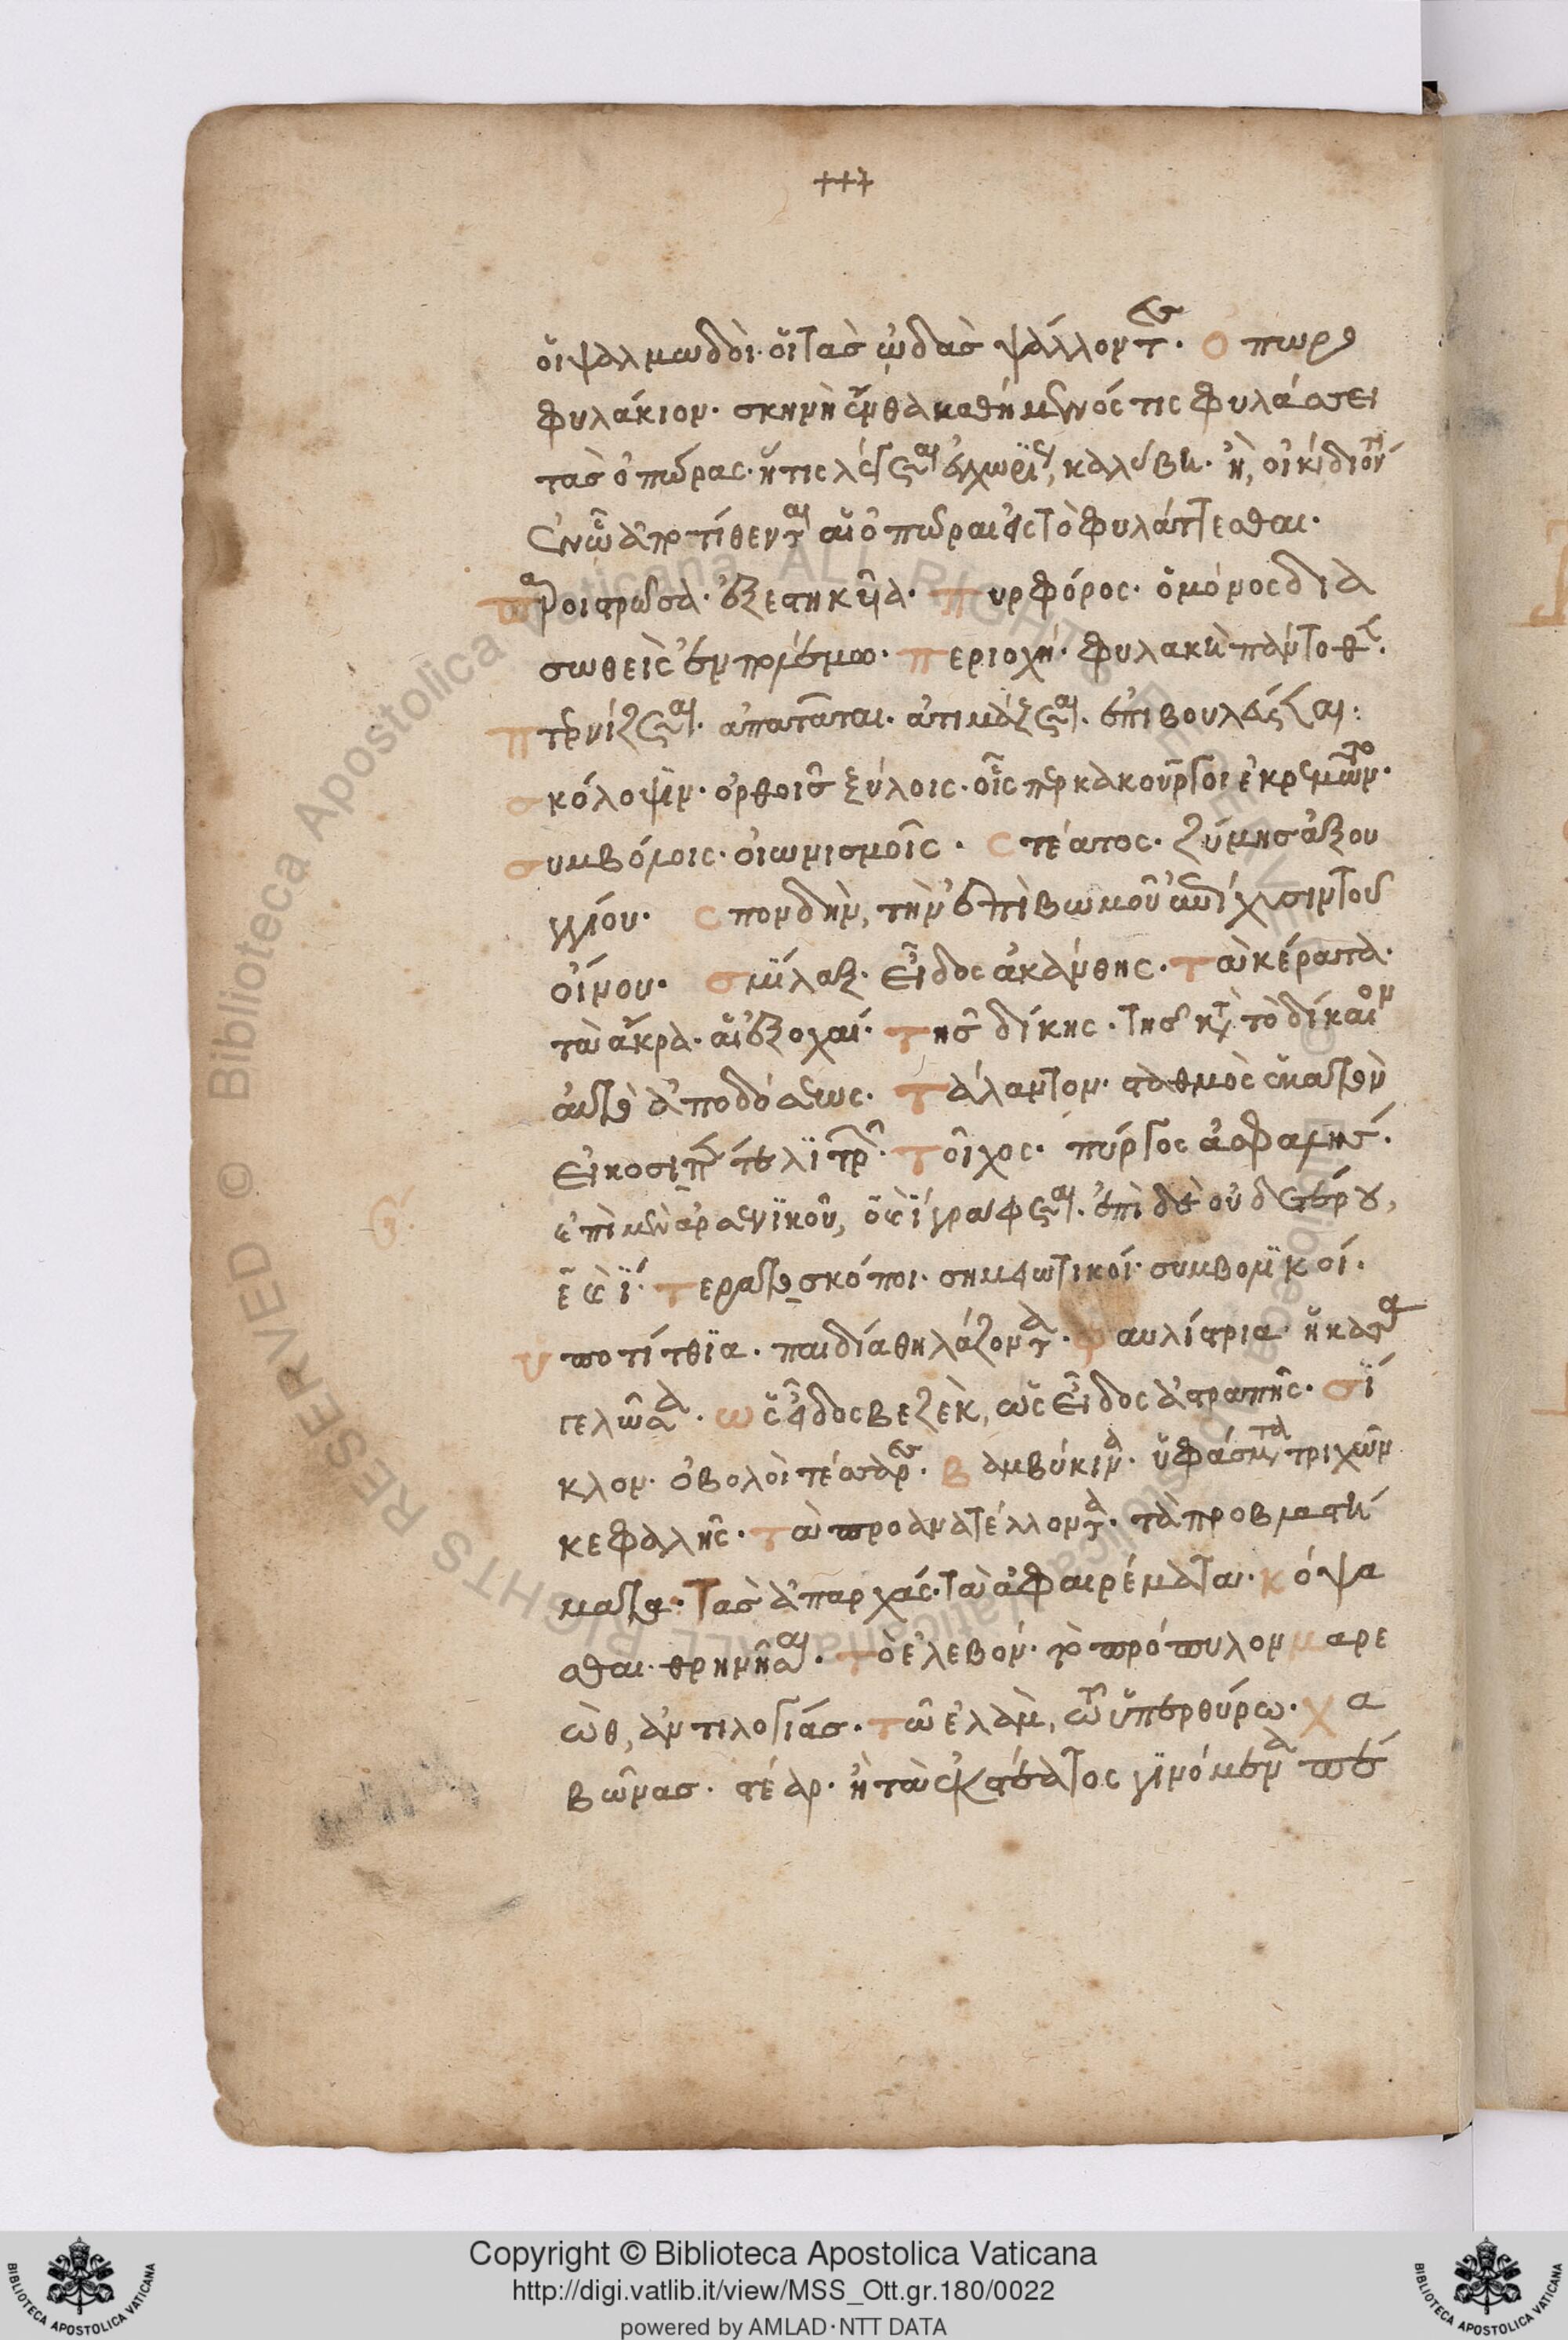 +++
οἱ ψαλμωδοὶ· οἱ τὰς ὠδὰς ψάλλοντες· Ὀπωρο
φυλάκιον· σκηνὴ ἔνθα καθήμενός τις φυλάσσει
τὰς ὀπώρας· ἥτις λέγεται καλύβη· ἢ, οἰκίδιόν τι
ἐν ὧ ἀποτίθενται αἱ ὀπῶραι εἰς τὸ φυλάττεσθαι·
παροιστρῶσα· ἐξεστηκυῖα· πυρφόρος· ὁ μόνος δια
σωθεὶς ἐν πολέμω· περιοχή· φυλακὴ πάντοθεν·
πτερνίζεται· ἀπατᾶται· ἀτιμάζεται· ἐπιβουλεύεται:
σκόλοψιν· ὀρθοῖς ξύλοις· οἷς περ κακοῦργοι ἐκρεμῶντο·
συμβόλοις· οἰωνισμοῖς· στέατος· ζύμης ἀξου
γγίου· σπονδὴν, τὴν ἐπὶ βωμοῦ ἀπόχυσιν τοῦ
οἴνου· σμίλαξ· εἶδος ἀκάνθης· τὰ κέρατα·
τὰ ἄκρα· αἱ ἐξοχαί· τῆς δίκης· τῆς κατὰ τὸ δίκαιον
αὐτῶ ἀποδόσεως· τάλαντον· σταθμὸς ἑκατὸν
εἰκοσιπέντε λιτρῶν· τοῖχος· πύργος ἀσφαλής·
ἐπὶ μὲν ἀρσενικοῦ, ο καὶ ι γράφεται· ἐπὶ δὲ οὐδετέρου,
ε καὶ ι· τερατοσκόποι· σημειωτικοί· συμβολικοί·
υποτίτθια· παιδία θηλάζοντα· φαυλίστρια· ἡ κατα
γελῶσα· ὡς εἶδος βεζὲκ, ὡς εἶδος ἀστραπῆς· σί
κλον· ὀβολοὶ τέσσαρες· βαμβύκινα· ὑφάσματα τριχῶν
κεφαλῆς· τὰ προανατέλλοντα· τὰ προβλαστή
ματα· τὰς ἀπαρχάς· τὰ ἀφαιρέματα· κόψα
σθαι· θρηνῆσαι· τὸ ἐλεβόν· τὸ πρόπυλον μαρε
ὼθ, ἀντιλογιάς· τῶ ἐλὰμ, τῶ ὑπερθύρω· χα
βῶνας· στέαρ· ἢ τὰ ἐκ στέατος γινόμενα πέ
Copyright © Biblioteca Apostolica Vaticana
http://digi.vatlib.it/view/MSS_Ott.gr.180/0022
powered by AMLAD·NTT DATA